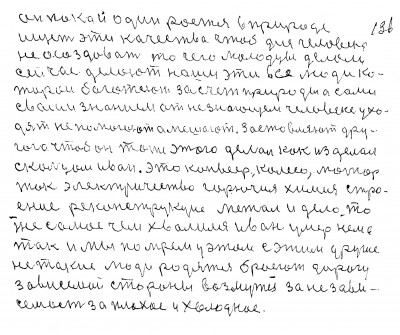 он покай один роется в природе 136
ищет эти качества чтоб для человека
не опаздовать то чего молодцы делали
сейчас делают наши эти все люди ко-
торои богатеют за счёт природы а сами
своим знанием от незнающем человеке ухо-
дят не помогают а мешают. Заставляют дру-
гого чтоб он тоже этого делал как изделал
скотцом иван. Это конвеер, колесо, мотор
ток электричество горючия химия стро-
ение реконструкцие метал и дело то
же самое чем хвалимя иван умер нема
так и мы помрем у этом с этим другие
не такие люди родятся бросют дорогу
зависемой стороны возмутся за незави-
семость за плохое и холодное.